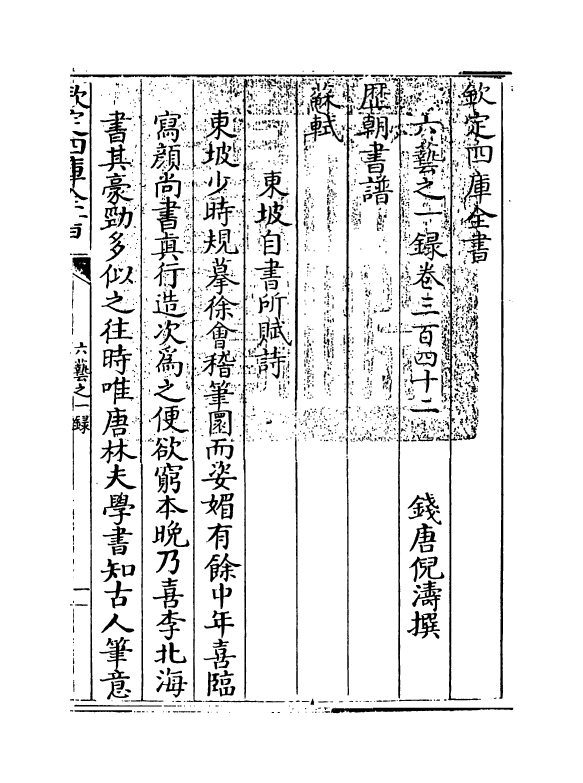 欽定四庫全書
六藝之一録卷三百四十二
錢唐倪濤撰
歴朝書譜
蘇軾
東坡自書所賦詩
東坡少時規摹徐會稽筆圜而姿媚有餘中年喜臨
寫顔尚書真行造次爲之便欲窮本晩乃喜李北海
書其豪勁多似之往時唯唐林夫學書知古人筆意
欽定四庫全書
六藝之一録